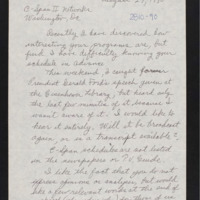 August 27, 1990
C-Span II Network
Washington, DC
280-90
Recently I have discovered how
interesting your programs are, but
find I have difficulty knowing your
schedule in advance.
This weekend, I caught former
President Gerald Ford's speech given at
the Eisenhower Library, but heard only
the last few minutes of it because I
wasn't aware of it. I would like to hear
it entirely. Will it be broadcast
again or is a transcript available?
C-Span schedules are not listed
in the newspapers or T.V. Guide.
I like the fact that you do not
express opinions or analyze. But would
like a few relevant words at the end of